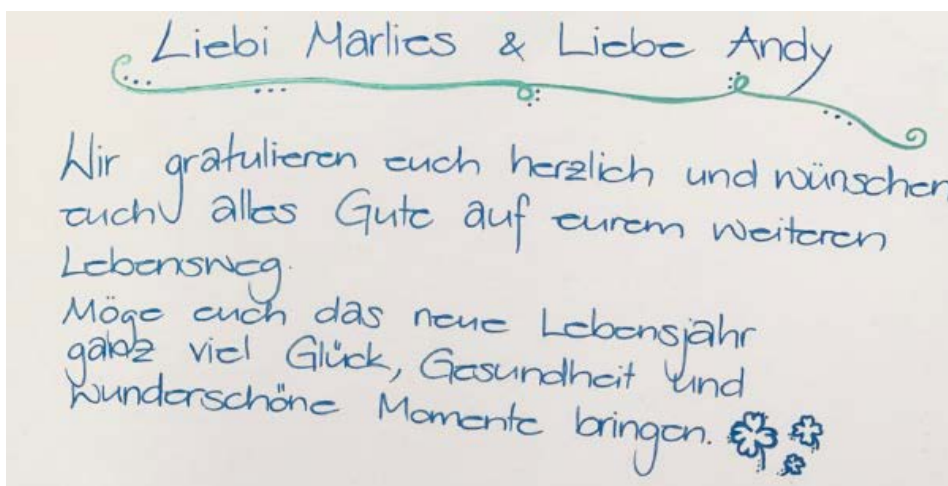 Liebi Marlies & Liebe Andy
Wir gratulieren euch herzlich und wünschen
euch alles Gute auf eurem weiteren
Lebensweg.
Möge euch das neue Lebensjahr
ganz viel Glück, Gesundheit und
wunderschöne Momente bringen.